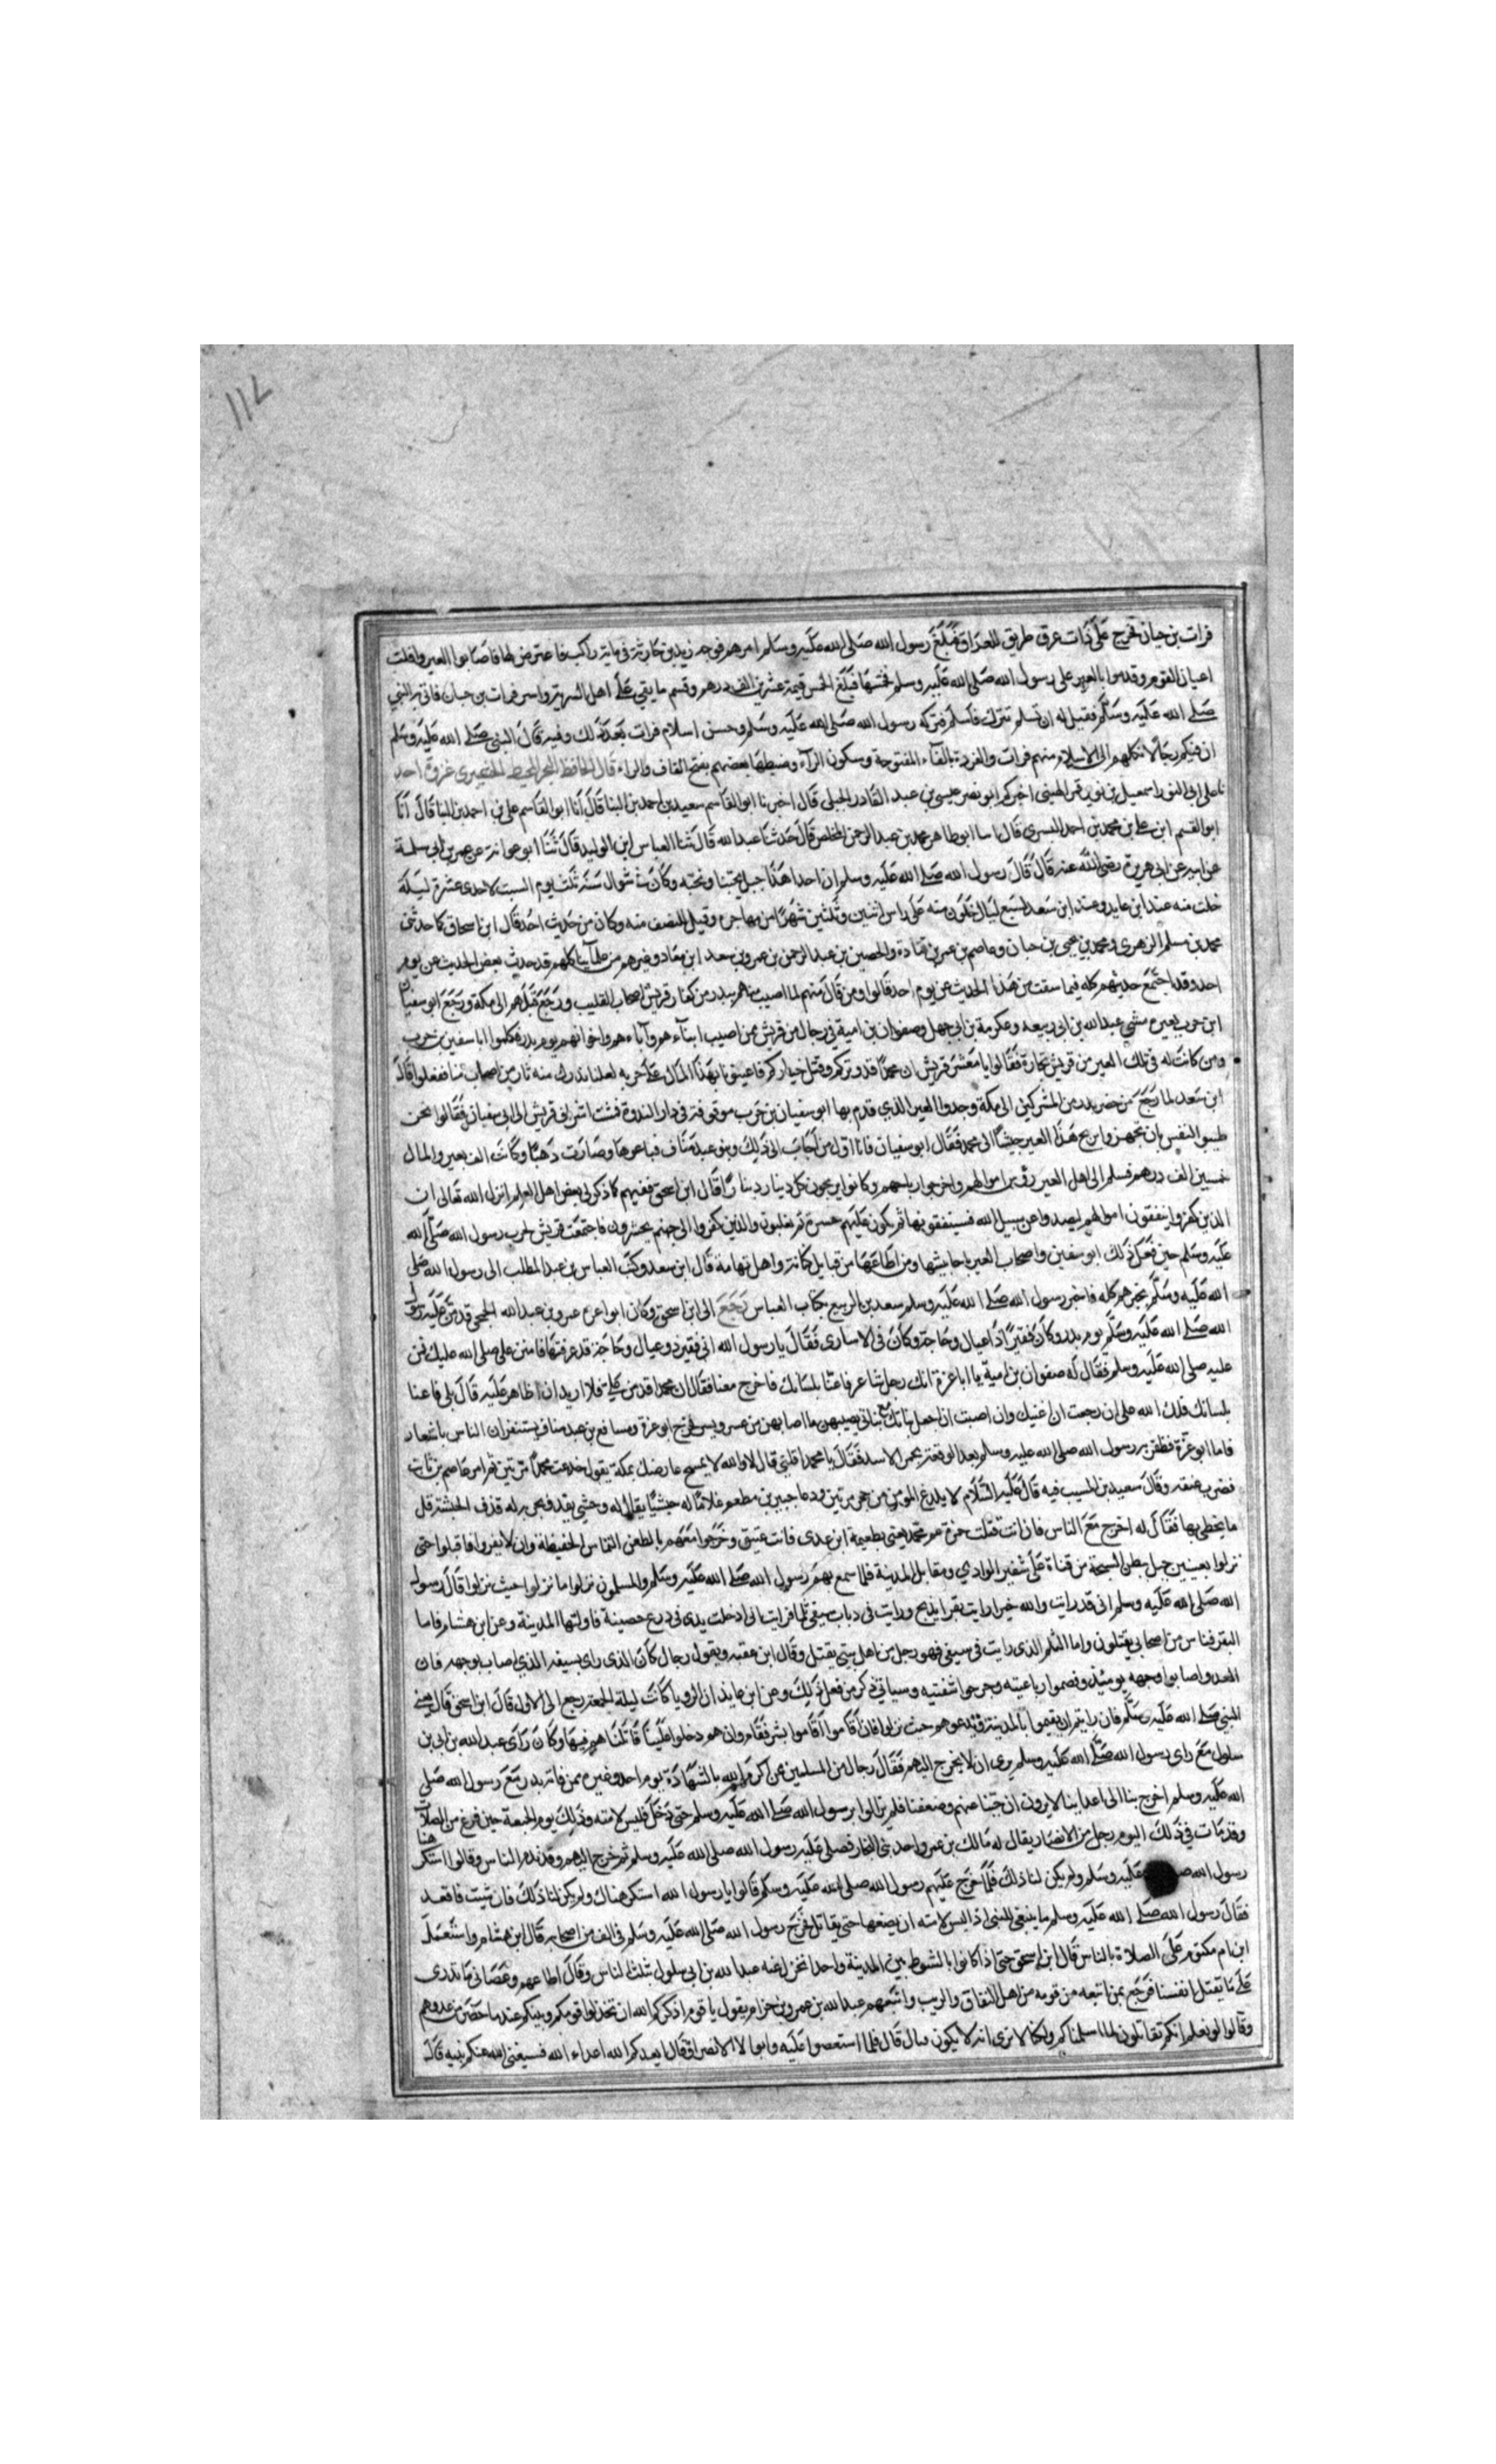 فرات بن حيان فخرج على ذات عرق طريق العراق فبلغ رسول الله صلى الله عليه وسلم امرهم فوجه زيد بن حارثة في ماية راكب فاعترض لها فاصابوا العير وافلت
اعيان القوم وقدموا بالعير على رسول الله صلى الله عليه وسلم فخمسها فبلغ الخمس قيمة عشرين الف درهم وقسم ما بقي على اهل السرية واسر فرات بن حيان فاتي به النبي
صلى الله عليه وسلم فقيل له ان تسلم تترك فاسلم فتركه رسول الله صلى الله عليه وسلم وحسن اسلام فرات بعد ذلك وفيه قال النبي صلى الله عليه وسلم
ان منكم رجالا نكلهم الى الاسلام منهم فرات والفردة بالفآء المفتوحة وسكون الرآء وضبطها بعضهم بفتح القاف والراء قال الحافظ غزوة احد
اسمعيل بن نور بن قمر الهيتى اخبركم ابو نصر موسى بن عبد القادر الجيلى قال اخبرنا ابو القاسم سعيد بن احمد بن البنا قال انا ابو القاسم على بن احمد بن البنا قال انا
ابو القسم ابن على بن محمد بن احمد البسري قال ابو طاهر محمد بن عبد الرحمن المخلص قال حدثنا عبد الله قال ثنا العباس ابن الوليد قال ثنا ابو عوانة عن عمر بن ابى سلمة
عن ابيه عن ابى هريرة رضى الله عنه قال قال رسول الله صلى الله عليه وسلم ان احدا هذا جبل يحبنا ونحبه وكانت فى شوال سنة ثلث يوم السبت لاحدى عشرة ليلة
خلت منه عند ابن عايد وعند ابن سعد لسبع ليال خلون منه على راس اثنين وثلثين شهرا من مهاجره وقيل للنصف منه وكان من حديث احد قال ابن اسحاق كما حدثنى
محمد بن مسلم الزهرى ومحمد بن يحيى بن حبان وعاصم بن عمر بن قتادة والحصين بن عبد الرحمن بن عمرو بن سعد ابن معاذ وغيرهم من علمآينا كلهم قد حدث بعض الحديث عن يوم
احد وقد اجتمع حديثهم كله فيما سقت من هذا الحديث عن يوم احد قالوا ومن قال منهم لما اصيب منهم ببدر من كفار قريش اصحاب القليب ورجع فلهم الى مكة ورجع ابو سفيان
ابن حرب بعيره مشى عبد الله بن ابى ربيعة وعكرمة بن ابى جهل وصفوان بن امية فى رجال من قريش ممن اصيب ابنآءهم وآباءهم واخوانهم يوم بدر فكلموا ابا سفين بن حرب
ومن كانت له فى تلك العير من قريش تجارة فقالوا يا معشر قريش ان محمدا قد وتركم وقتل خياركم فاعينونا بهذا المال على حربه لعلنا ندرك منه ثار من اصحاب منا ففعلوا قال
ابن سعد لما رجع من حضر بدر من المشركين الى مكة وجدوا العير الذي قدم بها ابو سفيان بن حرب موقوفة فى دار الندوة فمشت اشراف قريش الى ابى سفيان فقالوا نحن
طيبو النفس بان تجهز وا بربح هذا العير جيشا الى محمد فقال ابو سفيان فانا اول من اجاب الى ذلك وبنو عبد مناف فباعوها وصارت ذهبا وكانت الف بعير والمال
خمسين الف درهم فسلم الى اهل العير رؤس اموالهم واخرجوا ارباحهم وكانوا يربحون كل دينار دينارا قال ابن اسحق ففيهم كما ذكر لى بعض اهل العلم انزل الله تعالى ان
الذين كفروا ينفقون اموالهم ليصدوا عن سبيل الله فسينفقونها ثم تكون عليهم حسرة ثم يغلبون والذين كفروا الى جهنم يحشرون فاجتمعت قريش لحرب رسول الله صلى الله
عليه وسلم حين فعل ذلك ابو سفين واصحاب العير باحابيشها ومن اطاعها من قبايل كنانة واهل تهامة قال ابن سعد وكتب العباس بن عبد المطلب الى رسول الله صلى
الله عليه وسلم بخبرهم كله فاخبر رسول الله صلى الله عليه وسلم سعد بن الربيع بكتاب العباس رجع الى ابن اسحق وكان ابو عزة عمرو بن عبد الله الجمحى قد من عليه رسول
الله صلى الله عليه وسلم يوم بدر وكان فقيرا ذا عيال وحاجة وكان فى الاسارى فقال يا رسول الله انى فقير ذو عيال وحاجة قد عرفتها فامنن على صلى الله عليك فمن
عليه صلى الله عليه وسلم فقال له صفوان بن امية يا ابا عزة انك رجل شاعر فاعنا بلسانك فاخرج معنا فقال ان محمدا قد من على فلا اريد ان اظاهر عليه قال بلى فاعنا
بلسانك فلك الله على ان رجعت ان اغنيك وان اصبت ان اجعل بناتك مع بناتى يصيبهن ما اصابهن من عسر ويسر فخرج ابو عزة ومسافع بن عبد مناف يستنفران الناس باشعار
فاما ابو عزة فظفر به رسول الله صلى الله عليه وسلم بعد الوقعة بحمر الاسد فقال يا محمد اقلنى قال لا والله لا تمسح عارضك بمكة يقول خدعت محمدا مرتين ثم امر عاصم بن ثابت
فضرب عنقه وقال سعيد بن المسيب فيه قال عليه السلام لا يلدغ المومن من جحر مرتين ودعا جبير بن مطعم غلاما له حبشيا يقال له وحشى يقذف بحربة له قذف الحبشة قل
ما يخطى بها فقال له اخرج مع الناس فان انت قتلت حمزة عم محمد بعمى بطعيمة ابن عدى فانت عتيق وخرجوا معهم بالظعن التماس الحفيظة وان لا يفروا فاقبلوا حتى
نزلوا بعينين جبل ببطن السبخة من قناة على شفير الوادي ومقابل المدينة فلما سمع بهم رسول الله صلى الله عليه وسلم والمسلمون نزلوا ما نزلوا حيث نزلوا قال رسول
الله صلى الله عليه وسلم انى قد رايت والله خيرا رايت بقرا يذبح ورايت فى ذباب سيفى ثلما ورايت انى ادخلت يدى فى درع حصينة فاولتها المدينة وعن ابن هشام فاما
البقر فناس من اصحابى يقتلون واما الثلم الذى رايت فى سيفى فهو رجل من اهل بيتى يقتل وقال ابن عقبة ويقول رجال كان الذى راى بسيفه الذي اصاب بوجهه فان
العدو اصابوا وجهه يومئذ وفصموا رباعيته وجرحوا شفتيه وسياتى ذكر من فعل ذلك وعن ابن عايذ ان الرويا كانت ليلة الجمعة رجع الى الاول قال ابن اسحق قال
النبى صلى الله عليه وسلم فان رايتم ان تقيموا بالمدينة وتدعوهم حيث نزلوا فان اقاموا اقاموا بشر مقام وان هم دخلوا علينا قاتلناهم فيها وكان راى عبد الله بن ابى بن
سلول مع راى رسول الله صلى الله عليه وسلم يرى ان لا يخرج اليهم فقال رجال من المسلمين ممن اكرم الله بالشهادة يوم احد وغيره ممن فاته بدر مع رسول الله صلى
الله عليه وسلم اخرج بنا الى اعداينا لا يرون ان جبنا عنهم وضعفنا فلم يزالوا برسول الله صلى الله عليه وسلم حتى دخل فلبس لامته وذلك يوم الجمعة حين فرغ من الصلاة
وقد مات فى ذلك اليوم رجل من الانصار يقال له مالك بن عمرو احد بنى النجار فصلى عليه رسول الله صلى الله عليه وسلم ثم خرج اليهم وقد ندم الناس وقالوا استكرهنا
رسول الله صلى عليه وسلم ولم يكن لنا ذلك فلما خرج عليهم رسول الله صلى الله عليه وسلم قالوا يا رسول الله استكرهناك ولم يكن لنا ذلك فان شيت فاقعد
فقال رسول الله صلى الله عليه وسلم ما ينبغى للنبى اذا لبس لامته ان يضعها حتى يقاتل فخرج رسول الله صلى الله عليه وسلم فى الف من اصحابه قال ابن هشام واستعمل
ابن ام مكتوم على الصلاة بالناس قال ابن اسحق حتى اذا كانوا بالشوط بين المدينة واحد انخزل عنه عبد الله بن ابى سلول بثلث الناس وقال اطاعهم وعصانى ما ندرى
على ما نقتل انفسنا فرجع بمن اتبعه من قومه من اهل النفاق والريب واتبعهم عبد الله بن عمرو بن حزام يقول يا قوم اذكركم الله ان تخذلوا قومكم ونبيكم عند ما حضر من عدوهم
وقالوا لو نعلم انكم تقاتلون لما اسلمناكم ولكنا لا نرى انه لا يكون قتال قال فلما استعصوا عليه وابوا الا الانصراف قال ابعدكم الله اعداء الله فسيغنى الله عنكم نبيه قال